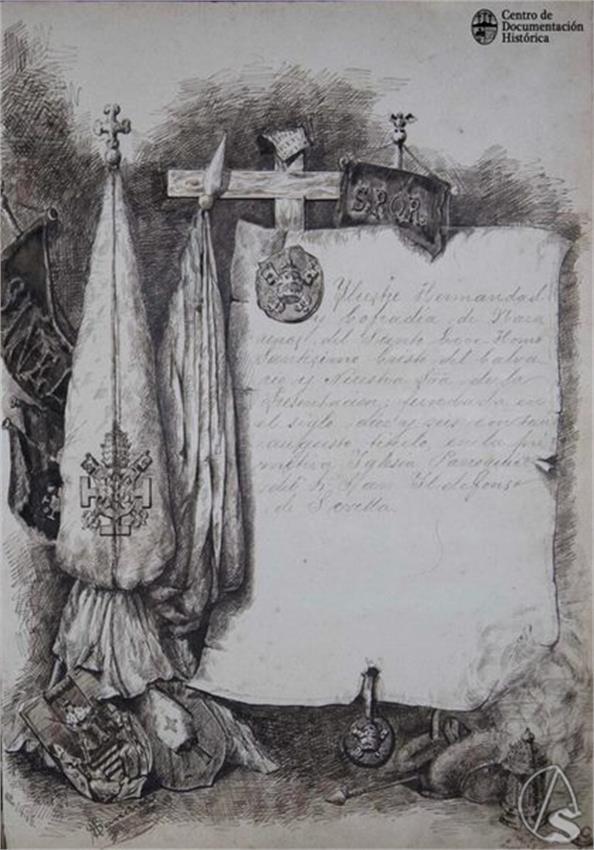 Centro de
Documentación
Histórica
S.P.Q.R.
Ylustre Hermandad
y Cofradía de Naza
renos del Santo Ecce Homo
Santísimo Cristo del Calva
rio y Nuestra Sra de la
Presentación; fundada en
el siglo diez y seis con tan
augusto título, en la pri
mitiva Yglesia Parroquial
de San Yldefonso
de Sevilla.